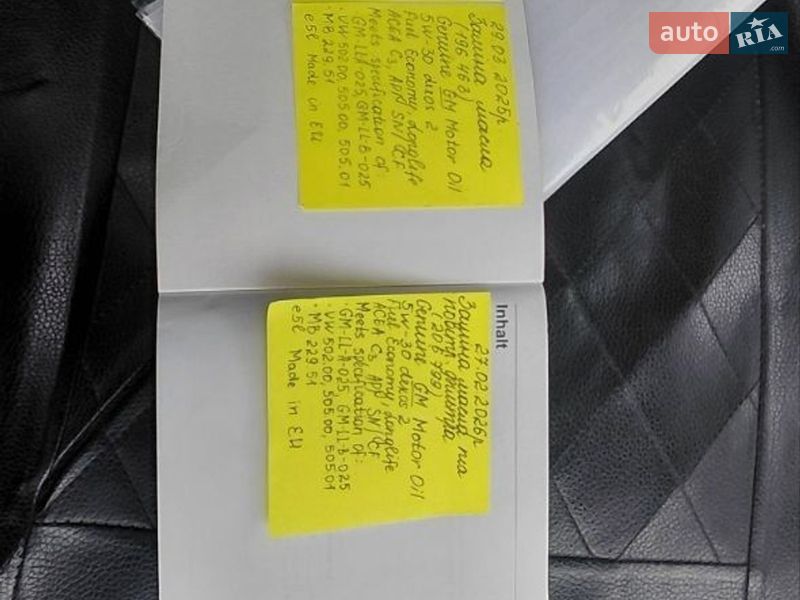 auto RIA.com
29.03.2025р.
Заміна масла
(196 463)
Genuine GM Motor Oil
5W-30 dexos 2
Fuel Economy Longlife
ACEA C3, API SN/CF
Meets specification of:
GM-LL-A-025, GM-LL-B-025
· VW 502.00, 505.00, 505.01
· MB 229.51
e5l Made in EU
Inhalt
27.02.2026р
Заміна масла та
повітр. фільтра
Genuine GM Motor Oil
5W-30 dexos 2
Fuel Economy Longlife
ACEA C3, API SN/CF
Meets specification of:
GM-LL-A-025, GM-LL-B-025
· VW 502.00, 505.00, 505.01
· MB 229.51
e5l Made in EU